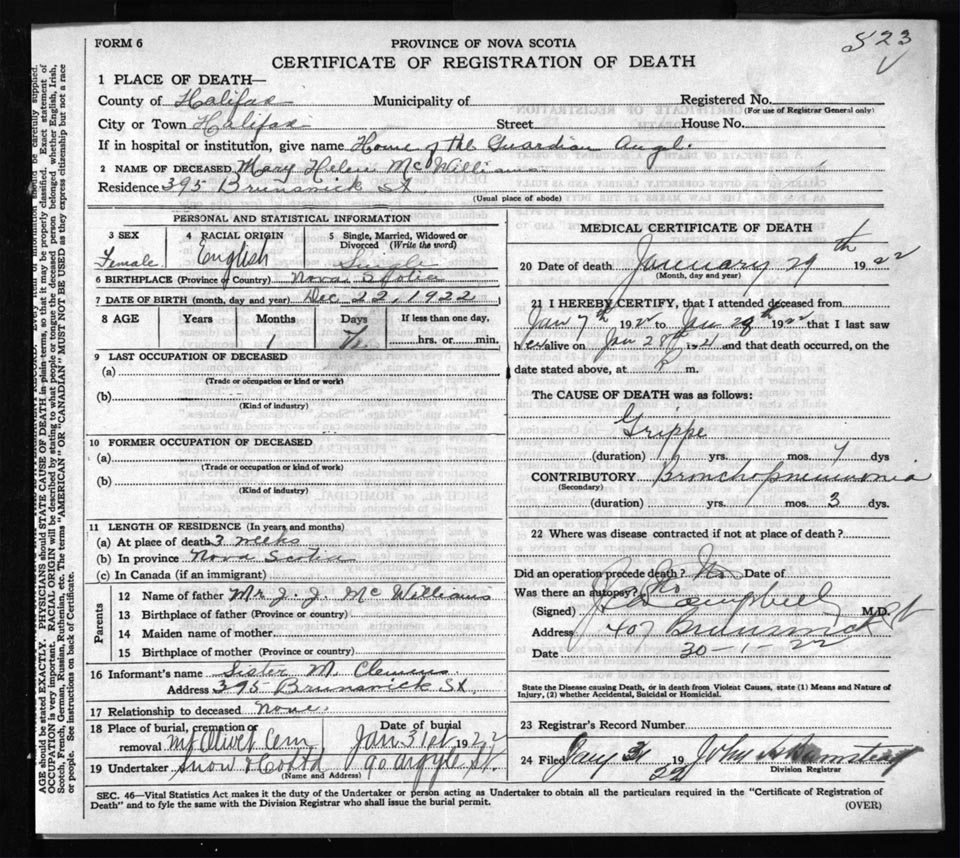 FORM 6
PROVINCE OF NOVA SCOTIA
523
CERTIFICATE OF REGISTRATION OF DEATH
1 PLACE OF DEATH—
County of Halifax Municipality of Registered No.
(For use of Registrar General only)
City or Town Halifax Street House No.
If in hospital or institution, give name Home of the Guardian Angel.
2 NAME OF DECEASED Mary Helen McWilliams
Residence 395 Brunswick St
(Usual place of abode)
PERSONAL AND STATISTICAL INFORMATION
3 SEX 4 RACIAL ORIGIN 5 Single, Married, Widowed or Divorced (Write the word)
Female English Single
6 BIRTHPLACE (Province or Country) Nova Scotia
7 DATE OF BIRTH (month, day and year) Dec 22, 1922
8 AGE Years Months Days If less than one day,
1 hrs. or min.
9 LAST OCCUPATION OF DECEASED
(a)
(Trade or occupation or kind or work)
(b)
(Kind of industry)
10 FORMER OCCUPATION OF DECEASED
(a)
(Trade or occupation or kind of work)
(b)
(Kind of industry)
11 LENGTH OF RESIDENCE (In years and months)
(a) At place of death 3 weeks
(b) In province Nova Scotia
(c) In Canada (if an immigrant)
Parents
12 Name of father Mr J. J. McWilliams
13 Birthplace of father (Province or country)
14 Maiden name of mother
15 Birthplace of mother (Province or country)
16 Informant's name Sister M. Clemens
Address 395 Brunswick St.
17 Relationship to deceased None.
18 Place of burial, cremation or removal Mt Olivet Cem Date of burial Jan 31st 1922
19 Undertaker Snow & Co Ltd 90 Argyle St.
(Name and Address)
MEDICAL CERTIFICATE OF DEATH
20 Date of death January 29th 1922
(Month, day and year)
21 I HEREBY CERTIFY, that I attended deceased from
Jan 7th 1922 to Jan 29th 1922 that I last saw
her alive on Jan 28th 1921 and that death occurred, on the
date stated above, at m.
The CAUSE OF DEATH was as follows:
Grippe
(duration) yrs. mos. 7 dys
CONTRIBUTORY Bronchopneumonia
(Secondary)
(duration) yrs. mos. 3 dys.
22 Where was disease contracted if not at place of death?
Did an operation precede death? No Date of
Was there an autopsy? No
(Signed) Campbell M.D.
Address 407 Brunswick St
Date 30-1-22
State the Disease causing Death, or in death from Violent Causes, state (1) Means and Nature of
Injury, (2) whether Accidental, Suicidal or Homicidal.
23 Registrar's Record Number
24 Filed Jany 31 1922 John
Division Registrar
SEC. 46—Vital Statistics Act makes it the duty of the Undertaker or person acting as Undertaker to obtain all the particulars required in the "Certificate of Registration of
Death" and to fyle the same with the Division Registrar who shall issue the burial permit.
(OVER)
AGE should be stated EXACTLY. PHYSICIANS should STATE CAUSE OF DEATH in plain terms, so that it may be properly classified. Exact statement of
OCCUPATION is very important. RACIAL ORIGIN will be described by stating to what people or tongue the deceased person belonged whether English, Irish,
Scotch, French, German, Russian, Ruthenian, etc. The terms "AMERICAN" OR "CANADIAN" MUST NOT BE USED as they express citizenship but not a race
or people. See instructions on back of Certificate.